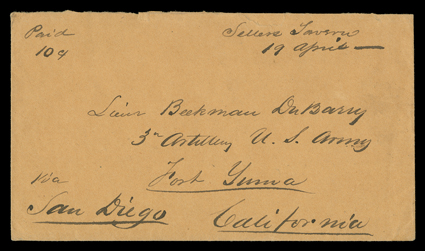 Paid
10¢
Sellers Tavern
19 April
Lieut Beekman DuBarry
3rd Artillery U. S. Army
Fort Yuma
via
San Diego
California